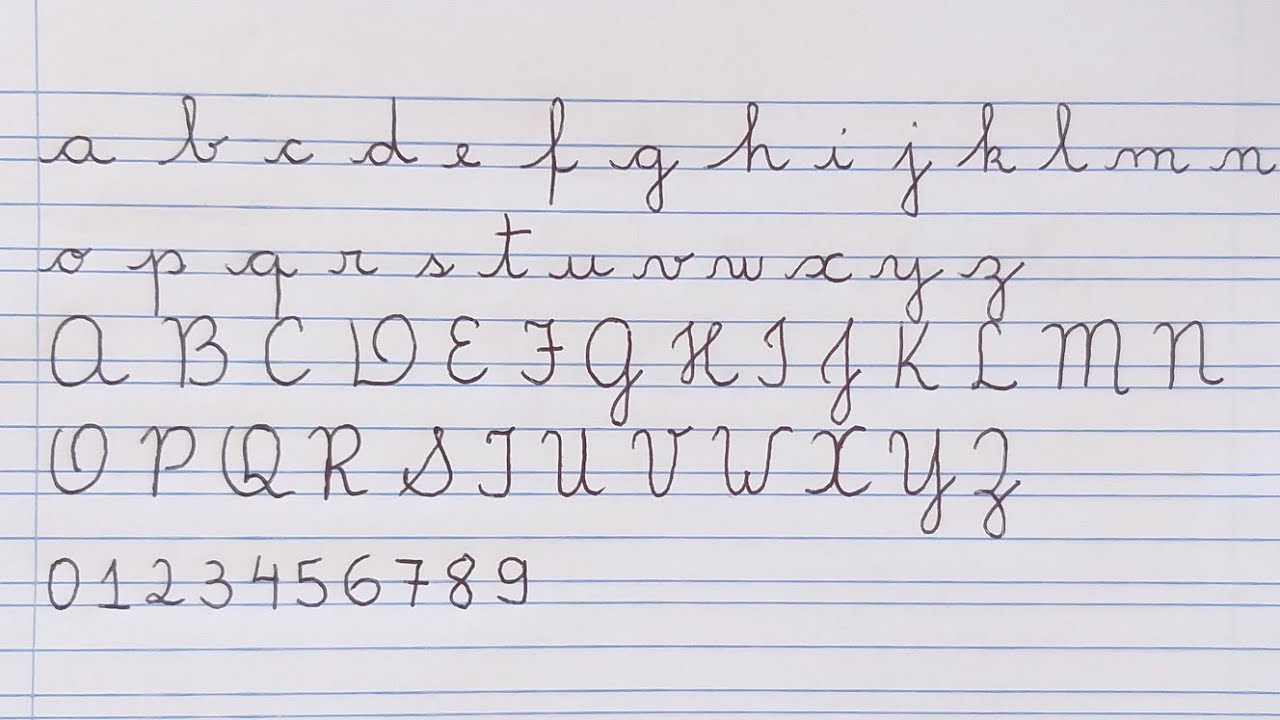 a b c d e f g h i j k l m n
o p q r s t u v w x y z
A B C D E F G H I J K L M N
O P Q R S T U V W X Y Z
0 1 2 3 4 5 6 7 8 9